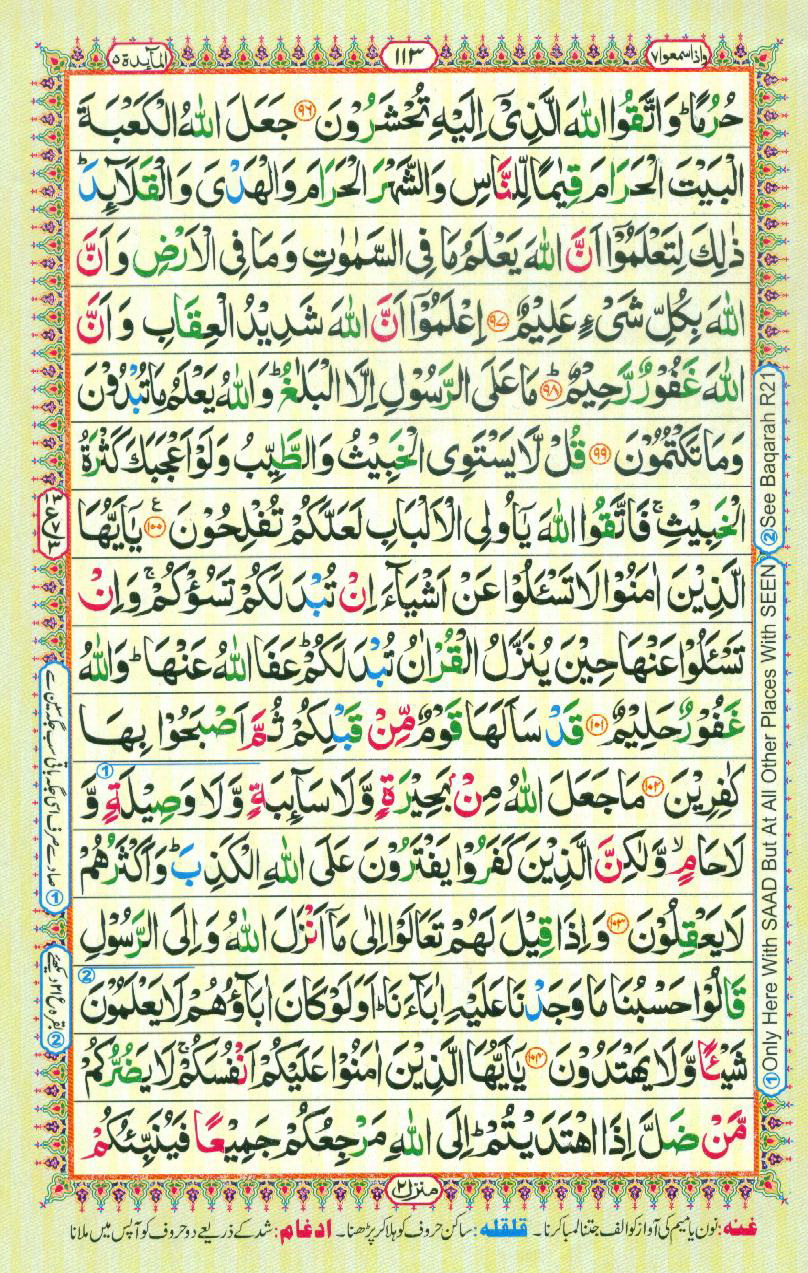 واذا سمعوا ٧
١١٣
المآئدة ٥
حُرُمًا ؕ وَاتَّقُوا اللّٰهَ الَّذِیْۤ اِلَیْهِ تُحْشَرُوْنَ ﴿۹۶﴾ جَعَلَ اللّٰهُ الْكَعْبَةَ
الْبَیْتَ الْحَرَامَ قِیٰمًا لِّلنَّاسِ وَالشَّهْرَ الْحَرَامَ وَالْهَدْیَ وَالْقَلَآئِدَ ؕ
ذٰلِكَ لِتَعْلَمُوْۤا اَنَّ اللّٰهَ یَعْلَمُ مَا فِی السَّمٰوٰتِ وَمَا فِی الْاَرْضِ وَاَنَّ
اللّٰهَ بِكُلِّ شَیْءٍ عَلِیْمٌ ﴿۹۷﴾ اِعْلَمُوْۤا اَنَّ اللّٰهَ شَدِیْدُ الْعِقَابِ وَاَنَّ
اللّٰهَ غَفُوْرٌ رَّحِیْمٌ ؕ﴿۹۸﴾ مَا عَلَی الرَّسُوْلِ اِلَّا الْبَلٰغُ ؕ وَاللّٰهُ یَعْلَمُ مَا تُبْدُوْنَ
وَمَا تَكْتُمُوْنَ ﴿۹۹﴾ قُلْ لَّا یَسْتَوِی الْخَبِیْثُ وَالطَّیِّبُ وَلَوْ اَعْجَبَكَ كَثْرَةُ
الْخَبِیْثِ ۚ فَاتَّقُوا اللّٰهَ یٰۤاُولِی الْاَلْبَابِ لَعَلَّكُمْ تُفْلِحُوْنَ ﴿۱۰۰﴾ ع یٰۤاَیُّهَا
الَّذِیْنَ اٰمَنُوْا لَا تَسْـَٔلُوْا عَنْ اَشْیَآءَ اِنْ تُبْدَ لَكُمْ تَسُؤْكُمْ ۚ وَاِنْ
تَسْـَٔلُوْا عَنْهَا حِیْنَ یُنَزَّلُ الْقُرْاٰنُ تُبْدَ لَكُمْ ؕ عَفَا اللّٰهُ عَنْهَا ؕ وَاللّٰهُ
غَفُوْرٌ حَلِیْمٌ ﴿۱۰۱﴾ قَدْ سَاَلَهَا قَوْمٌ مِّنْ قَبْلِكُمْ ثُمَّ اَصْبَحُوْا بِهَا
كٰفِرِیْنَ ﴿۱۰۲﴾ مَا جَعَلَ اللّٰهُ مِنْۢ بَحِیْرَةٍ وَّلَا سَآئِبَةٍ وَّلَا وَصِیْلَةٍ وَّ
لَا حَامٍ ۙ وَّلٰكِنَّ الَّذِیْنَ كَفَرُوْا یَفْتَرُوْنَ عَلَی اللّٰهِ الْكَذِبَ ؕ وَاَكْثَرُهُمْ
لَا یَعْقِلُوْنَ ﴿۱۰۳﴾ وَاِذَا قِیْلَ لَهُمْ تَعَالَوْا اِلٰی مَاۤ اَنْزَلَ اللّٰهُ وَاِلَی الرَّسُوْلِ
قَالُوْا حَسْبُنَا مَا وَجَدْنَا عَلَیْهِ اٰبَآءَنَا ؕ اَوَلَوْ كَانَ اٰبَآؤُهُمْ لَا یَعْلَمُوْنَ
شَیْـًٔا وَّلَا یَهْتَدُوْنَ ﴿۱۰۴﴾ یٰۤاَیُّهَا الَّذِیْنَ اٰمَنُوْا عَلَیْكُمْ اَنْفُسَكُمْ ۚ لَا یَضُرُّكُمْ
مَّنْ ضَلَّ اِذَا اهْتَدَیْتُمْ ؕ اِلَی اللّٰهِ مَرْجِعُكُمْ جَمِیْعًا فَیُنَبِّئُكُمْ
منزل ٢
غنه: نون یا میم کی آواز کو الف جتنا لمبا کرنا ۔ قلقله: ساکن حروف کو ہلا کر پڑھنا ۔ ادغام: شد کے ذریعے دو حروف کو آپس میں ملانا
① Only Here With SAAD But At All Other Places With SEEN
② See Baqarah R21
① صاد سے صرف اسی جگہ باقی سب جگہ سین سے
② بقرہ ٢١ دیکھئے